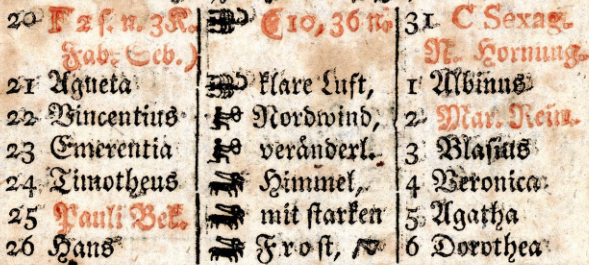 20 F 2 s. n. 3K. 10, 36 n. 31 C Sexag.
Fab. Seb.) N. Hornung.
21 Agneta klare Luft, 1 Albinus
22 Vincentius Nordwind, 2 Mar. Rein.
23 Emerentia veränderl. 3 Blasius
24 Timotheus Himmel, 4 Veronica
25 Pauli Bek. mit starken 5 Agatha
26 Hans Frost, 6 Dorothea